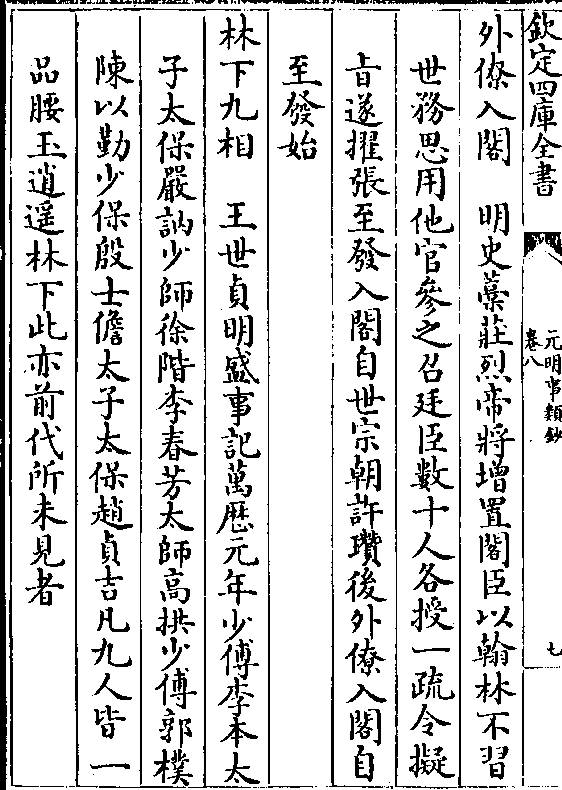 欽定四庫全書
元明事類鈔
卷八
七
外僚入閣　明史藁莊烈帝將增置閣臣以翰林不習
世務思用他官參之召廷臣數十人各授一疏令擬
旨遂擢張至發入閣自世宗朝許瓚後外僚入閣自
至發始
林下九相　王世貞明盛事記萬厯元年少傅李本太
子太保嚴訥少師徐階李春芳太師高拱少傅郭樸
陳以勤少保殷士儋太子太保趙貞吉凡九人皆一
品腰玉逍遥林下此亦前代所未見者